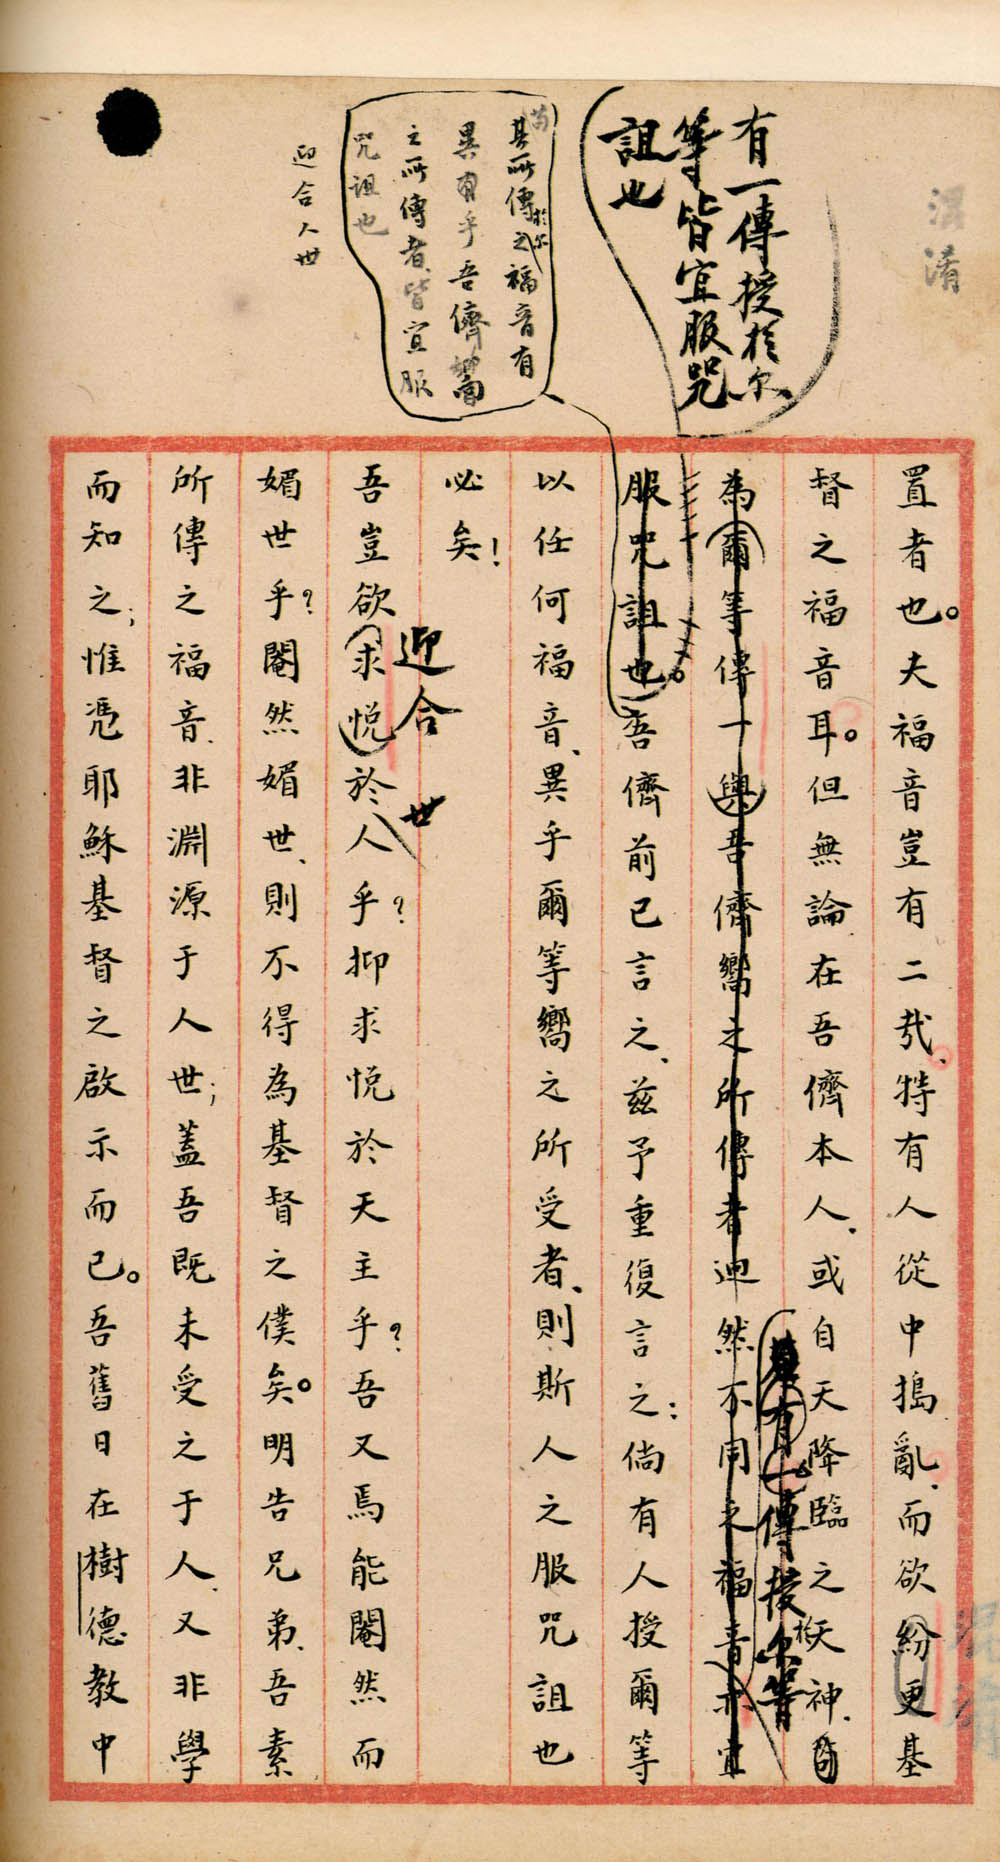 混淆
有一傳授於尔
等皆宜服咒
詛也
苗
其所傳於尔之福音有
異乎吾儕嚮
之所傳者皆宜服
咒詛也
迎合人世
置者也。夫福音豈有二哉、特有人從中搗亂、而欲紛更基
督之福音耳。但無論在吾儕本人、或自天降臨之天神、
為爾等傳一與吾儕嚮之所傳者迥然不同之福音亦宜
有一傳授尔等
服咒詛也。吾儕前已言之、茲予重復言之:倘有人授爾等
以任何福音、異乎爾等嚮之所受者、則斯人之服咒詛也
必矣!
吾豈欲求悅於人乎?抑求悅於天主乎?吾又焉能閹然而
迎合世
媚世乎?閹然媚世、則不得為基督之僕矣。明告兄弟、吾素
所傳之福音、非淵源于人世;蓋吾既未受之于人、又非學
而知之;惟憑耶穌基督之啟示而已。吾舊日在樹德教中